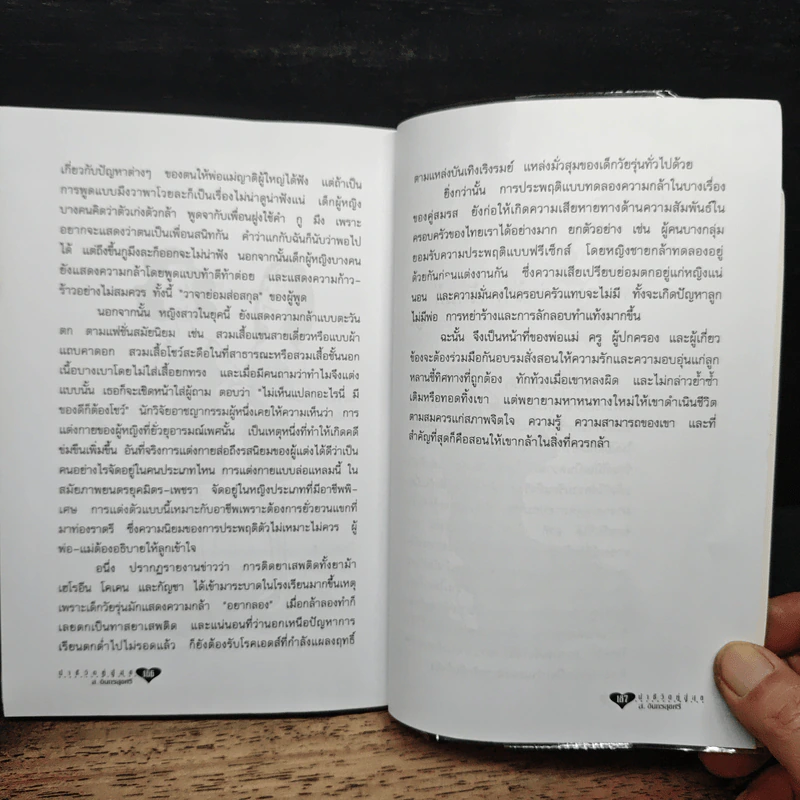 เกี่ยวกับปัญหาต่างๆ ของตนให้พ่อแม่ญาติผู้ใหญ่ได้ฟัง แต่ถ้าเป็น
การพูดแบบมึงวาพาโวยละก็เป็นเรื่องไม่น่าดูน่าฟังแน่ เด็กผู้หญิง
บางคนคิดว่าตัวเก่งตัวกล้า พูดจากับเพื่อนฝูงใช้คำ กู มึง เพราะ
อยากจะแสดงว่าตนเป็นเพื่อนสนิทกัน คำว่าแกกับฉันก็นับว่าพอไป
ได้ แต่ถึงขึ้นกูมึงละก็ออกจะไม่น่าฟัง นอกจากนั้นเด็กผู้หญิงบางคน
ยังแสดงความกล้าโดยพูดแบบท้าตีท้าต่อย และแสดงความก้าว-
ร้าวอย่างไม่สมควร ทั้งนี้ "วาจาย่อมส่อสกุล" ของผู้พูด
นอกจากนั้น หญิงสาวในยุคนี้ ยังแสดงความกล้าแบบตะวัน
ตก ตามแฟชั่นสมัยนิยม เช่น สวมเสื้อแขนสายเดี่ยวหรือแบบผ้า
แถบคาดอก สวมเสื้อโชว์สะดือในที่สาธารณะหรือสวมเสื้อชั้นนอก
เนื้อบางเบาโดยไม่ใส่เสื้อยกทรง และเมื่อมีคนถามว่าทำไมจึงแต่ง
แบบนั้น เธอก็จะเชิดหน้าใส่ผู้ถาม ตอบว่า "ไม่เห็นแปลกอะไรนี่ มี
ของดีก็ต้องโชว์" นักวิจัยอาชญากรรมผู้หนึ่งเคยให้ความเห็นว่า การ
แต่งกายของผู้หญิงที่ยั่วยุอารมณ์เพศนั้น เป็นเหตุหนึ่งที่ทำให้เกิดคดี
ข่มขืนเพิ่มขึ้น อันที่จริงการแต่งกายส่อถึงรสนิยมของผู้แต่งได้ดีว่าเป็น
คนอย่างไรจัดอยู่ในคนประเภทไหน การแต่งกายแบบล่อแหลมนี้ ใน
สมัยภาพยนตรยุคมิตร-เพชรา จัดอยู่ในหญิงประเภทที่มีอาชีพพิ-
เศษ การแต่งตัวแบบนี้เหมาะกับอาชีพเพราะต้องการยั่วยวนแขกที่
มาท่องราตรี ซึ่งความนิยมของการประพฤติตัวไม่เหมาะไม่ควร ผู้
พ่อ-แม่ต้องอธิบายให้ลูกเข้าใจ
อนึ่ง ปรากฏรายงานข่าวว่า การติดยาเสพติดทั้งยาม้า
เฮโรอีน โคเคน และกัญชา ได้เข้ามาระบาดในโรงเรียนมากขึ้นเหตุ
เพราะเด็กวัยรุ่นมักแสดงความกล้า "อยากลอง" เมื่อกล้าลองทำก็
เลยตกเป็นทาสยาเสพติด และแน่นอนที่ว่านอกเหนือปัญหาการ
เรียนตกต่ำไปไม่รอดแล้ว ก็ยังต้องรับโรคเอดส์ที่กำลังแผลงฤทธิ์
186
ส. อินทรสุตศรี
ตามแหล่งบันเทิงเริงรมย์ แหล่งมั่วสุมของเด็กวัยรุ่นทั่วไปด้วย
ยิ่งกว่านั้น การประพฤติแบบทดลองความกล้าในบางเรื่อง
ของคู่สมรส ยังก่อให้เกิดความเสียหายทางด้านความสัมพันธ์ใน
ครอบครัวของไทยเราได้อย่างมาก ยกตัวอย่าง เช่น ผู้คนบางกลุ่ม
ยอมรับความประพฤติแบบฟรีเซ็กส์ โดยหญิงชายกล้าทดลองอยู่
ด้วยกันก่อนแต่งงานกัน ซึ่งความเสียเปรียบย่อมตกอยู่แก่หญิงแน่
นอน และความมั่นคงในครอบครัวแทบจะไม่มี ทั้งจะเกิดปัญหาลูก
ไม่มีพ่อ การหย่าร้างและการลักลอบทำแท้งมากขึ้น
ฉะนั้น จึงเป็นหน้าที่ของพ่อแม่ ครู ผู้ปกครอง และผู้เกี่ยว
ข้องจะต้องร่วมมือกันอบรมสั่งสอนให้ความรักและความอบอุ่นแก่ลูก
หลานชี้ทิศทางที่ถูกต้อง ทักท้วงเมื่อเขาหลงผิด และไม่กล่าวย้ำซ้ำ
เติมหรือทอดทิ้งเขา แต่พยายามหาหนทางใหม่ให้เขาดำเนินชีวิต
ตามสมควรแก่สภาพจิตใจ ความรู้ ความสามารถของเขา และที่
สำคัญที่สุดก็คือสอนให้เขากล้าในสิ่งที่ควรกล้า
187
ส. อินทรสุตศรี